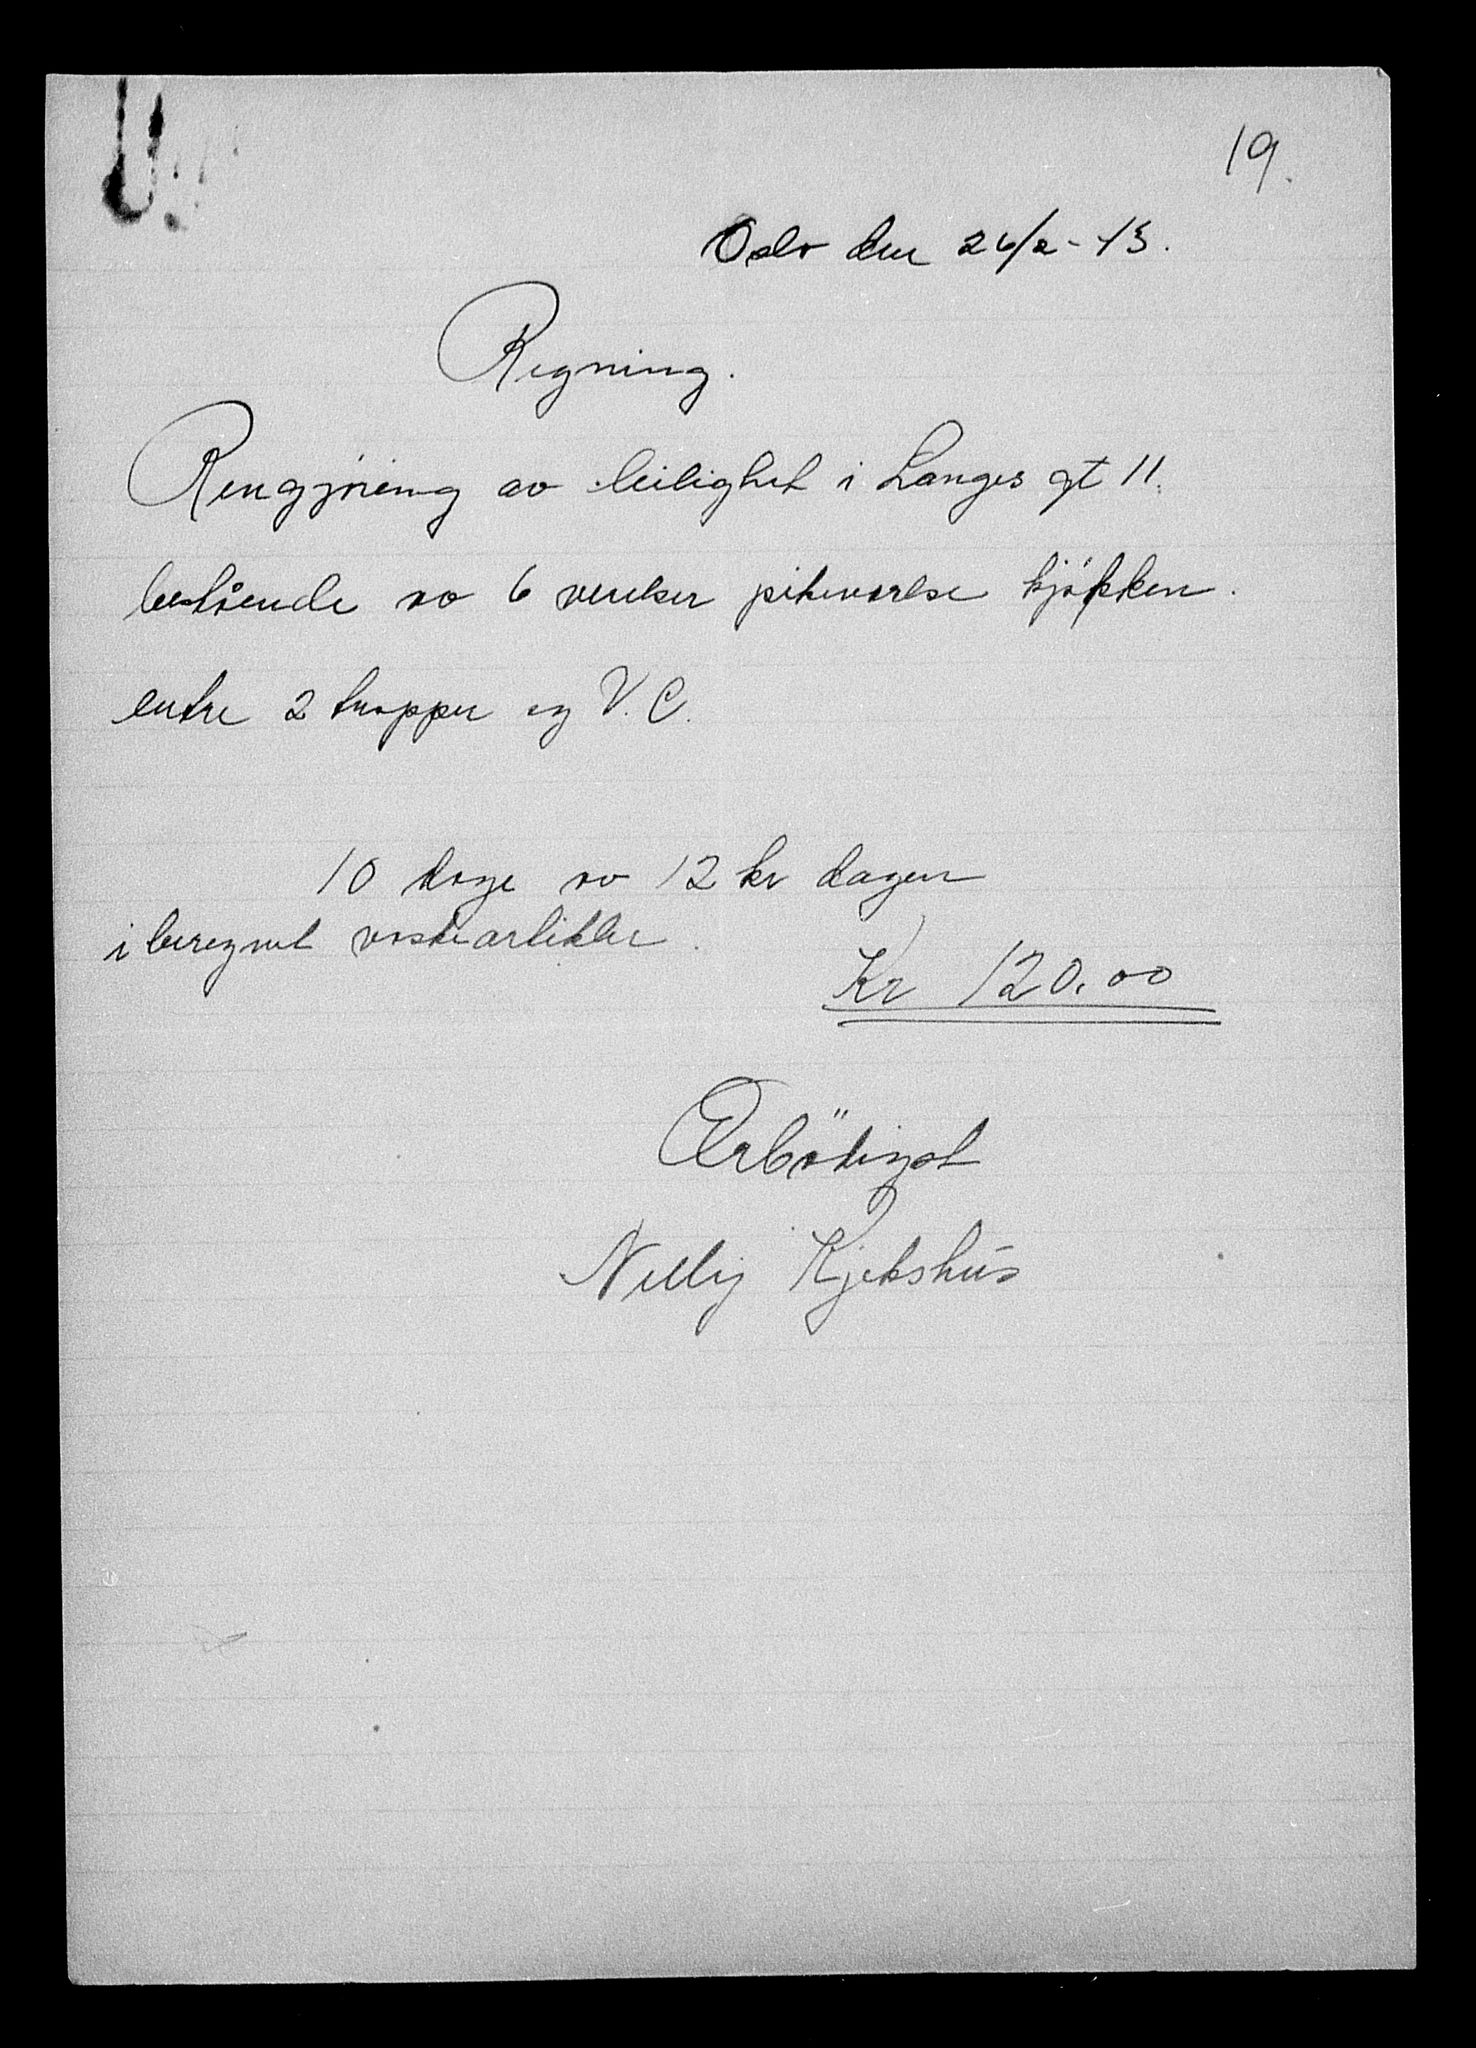 19.
Oslo den 26/2-43.
Regning.
Rengjøring av leilighet i Langes gt 11.
bestående av 6 værelser pikeværelse kjøkken.
entre 2 trapper og V.C.
10 dage av 12 kr dagen
iberegnet vaskeartikler.
Kr 120.00
Ærbödigst
Nelly Kjekshus